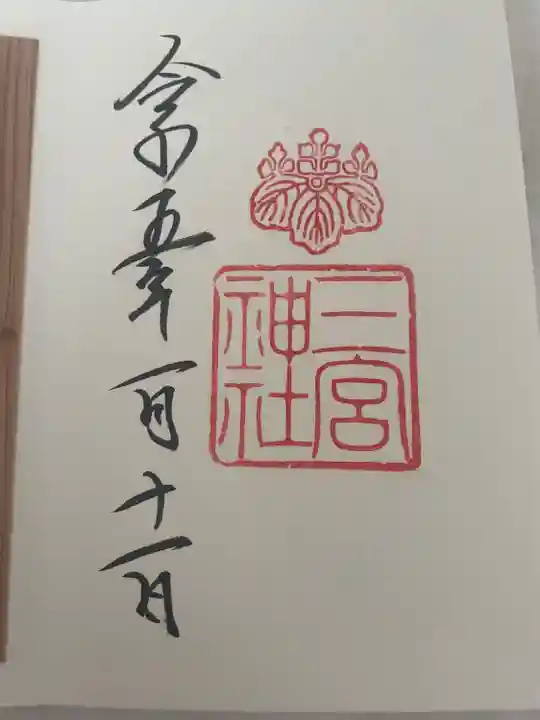 三宮
神社
令和五年一月十一日